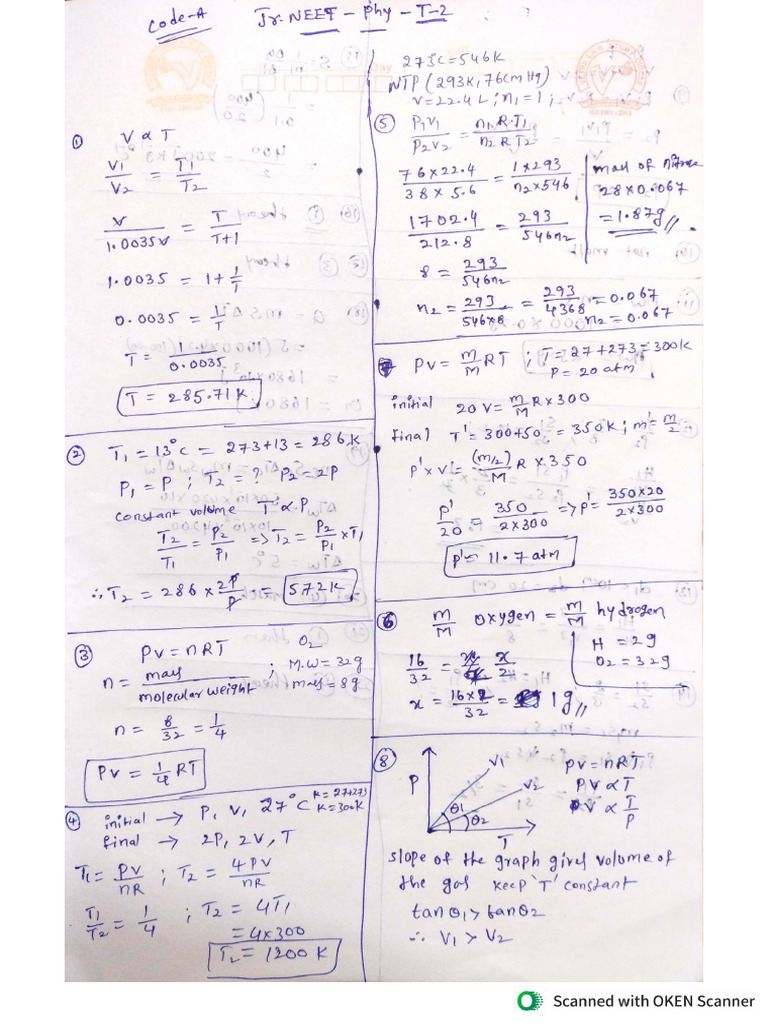 code-A Jr. NEET - Phy - T-2
① V ∝ T
V1/V2 = T1/T2
V/1.0035V = T/T+1
1.0035 = 1 + 1/T
0.0035 = 1/T
T = 1/0.0035
T = 285.71 K
② T1 = 13°C = 273+13 = 286K
P1 = P ; T2 = ? P2 = 2P
constant volume T ∝ P
T2/T1 = P2/P1 => T2 = P2/P1 × T1
∴ T2 = 286 × 2P/P = 572K
③ PV = nRT O2
n = mass/molecular weight ; M.W = 32g
mass = 8g
n = 8/32 = 1/4
PV = 1/4 RT
④ initial → P, V, 27°C K = 27+273
K = 300K
final → 2P, 2V, T
T1 = PV/nR ; T2 = 4PV/nR
T1/T2 = 1/4 ; T2 = 4T1
= 4×300
T2 = 1200 K
273°C = 546K
NTP (293K, 76cm Hg)
V = 22.4 L ; n1 = 1 ;
⑤ P1V1/P2V2 = n1 R T1/n2 R T2
76×22.4/38×5.6 = 1×293/n2×546
1702.4/212.8 = 293/546n2
8 = 293/546n2
n2 = 293/546×8 = 293/4368 = 0.067
n2 = 0.067
mass of
28×0.067
= 1.87g
PV = m/M RT ; T = 27+273 = 300K
P = 20 atm
initial 20 V = m/M R×300
final T' = 300+50 = 350K ; m' = m/2
P' × V = (m/2)/M R × 350
P'/20 = 350/2×300 => P' = 350×20/2×300
P' = 11.7 atm
⑥ m/M oxygen = m/M hydrogen
H = 2g
O2 = 32g
16/32 = x/2
x = 16×2/32 = 1g
⑧ P V1 V2 θ1 θ2 T
PV = nRT
PV ∝ T
V ∝ T/P
slope of the graph gives volume of
the gas keep 'T' constant
tanθ1 > tanθ2
∴ V1 > V2
Scanned with OKEN Scanner